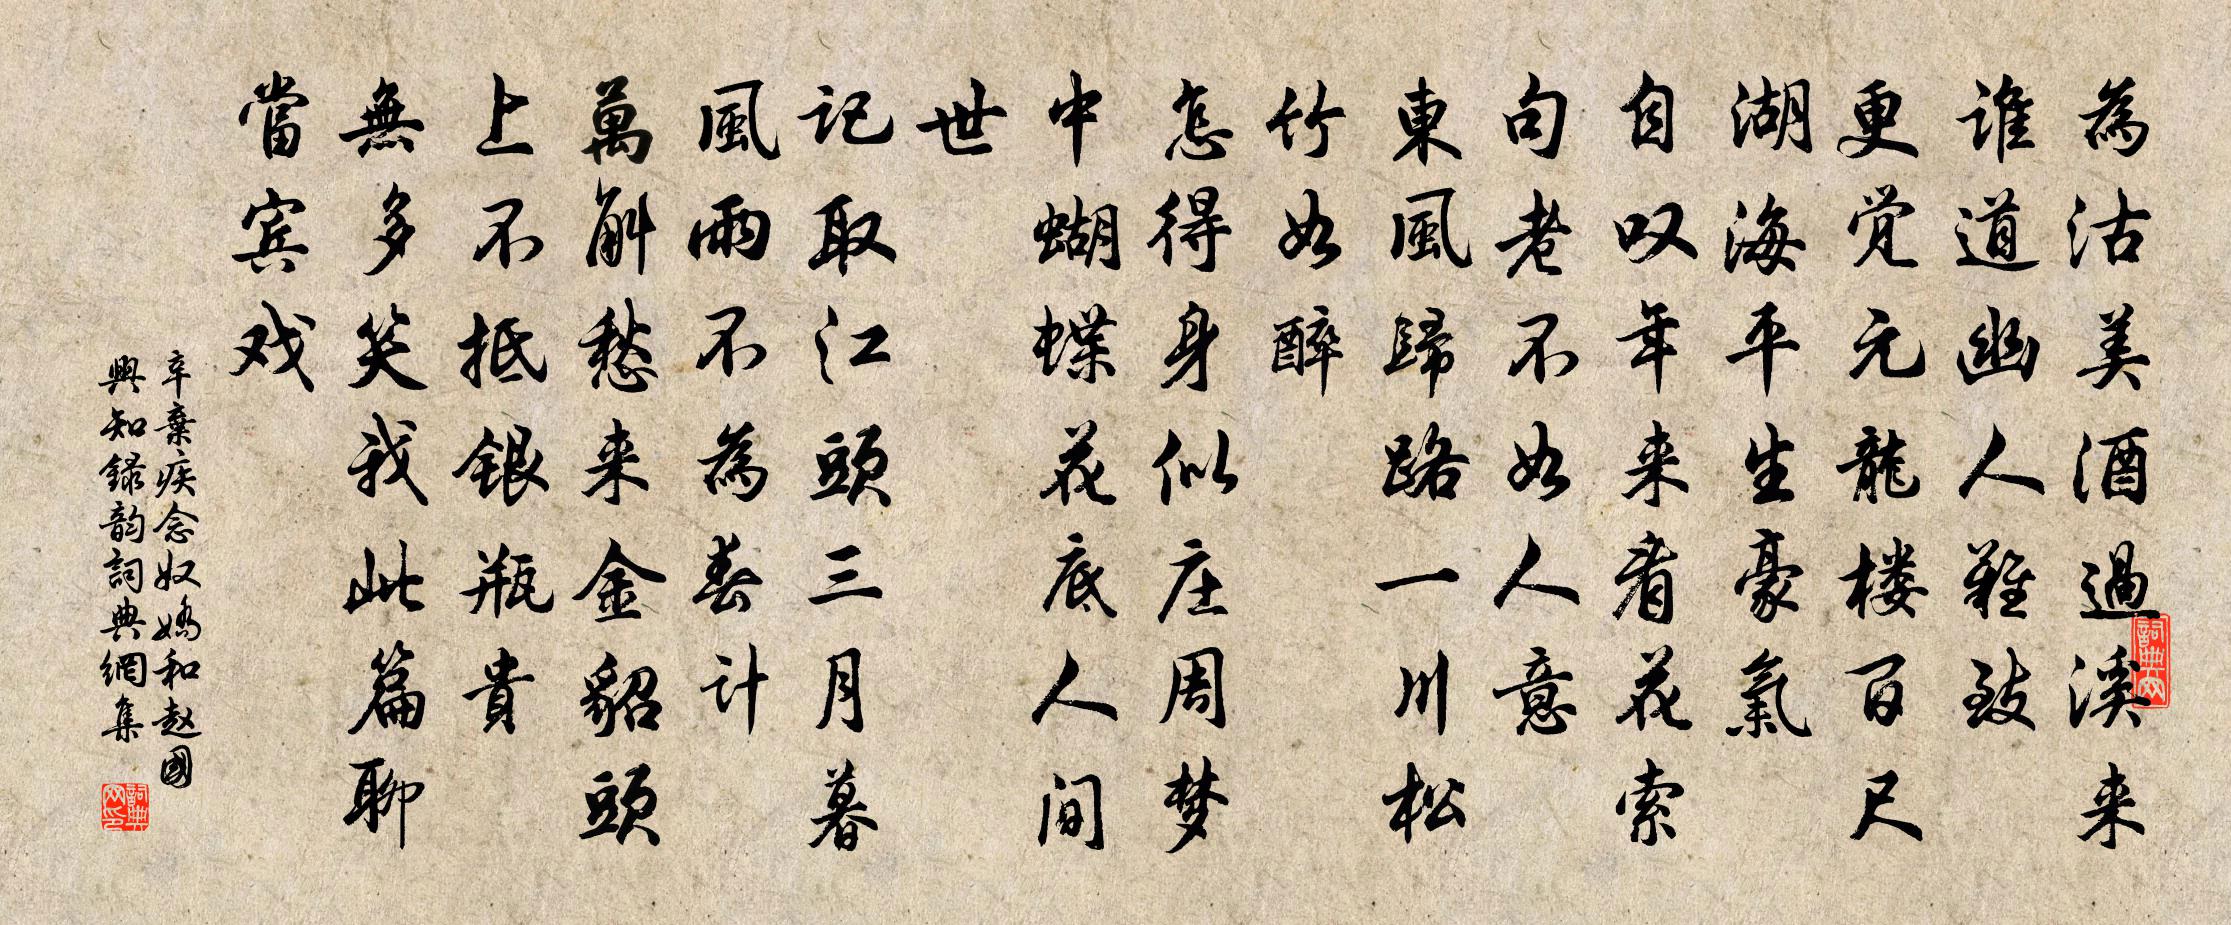 為沽美酒過溪来
谁道幽人難致
更觉元龍楼百尺
湖海平生豪氣
自叹年来看花索
句老不如人意
東風歸路一川松
竹如醉
怎得身似庄周梦
中蝴蝶花底人间
世
记取江頭三月暮
風雨不為春计
萬斛愁来金貂頭
上不抵銀瓶貴
無多笑我此篇聊
當宾戏
辛棄疾念奴嬌和赵國
興知録韵詞典網集
詞典网
詞典网印